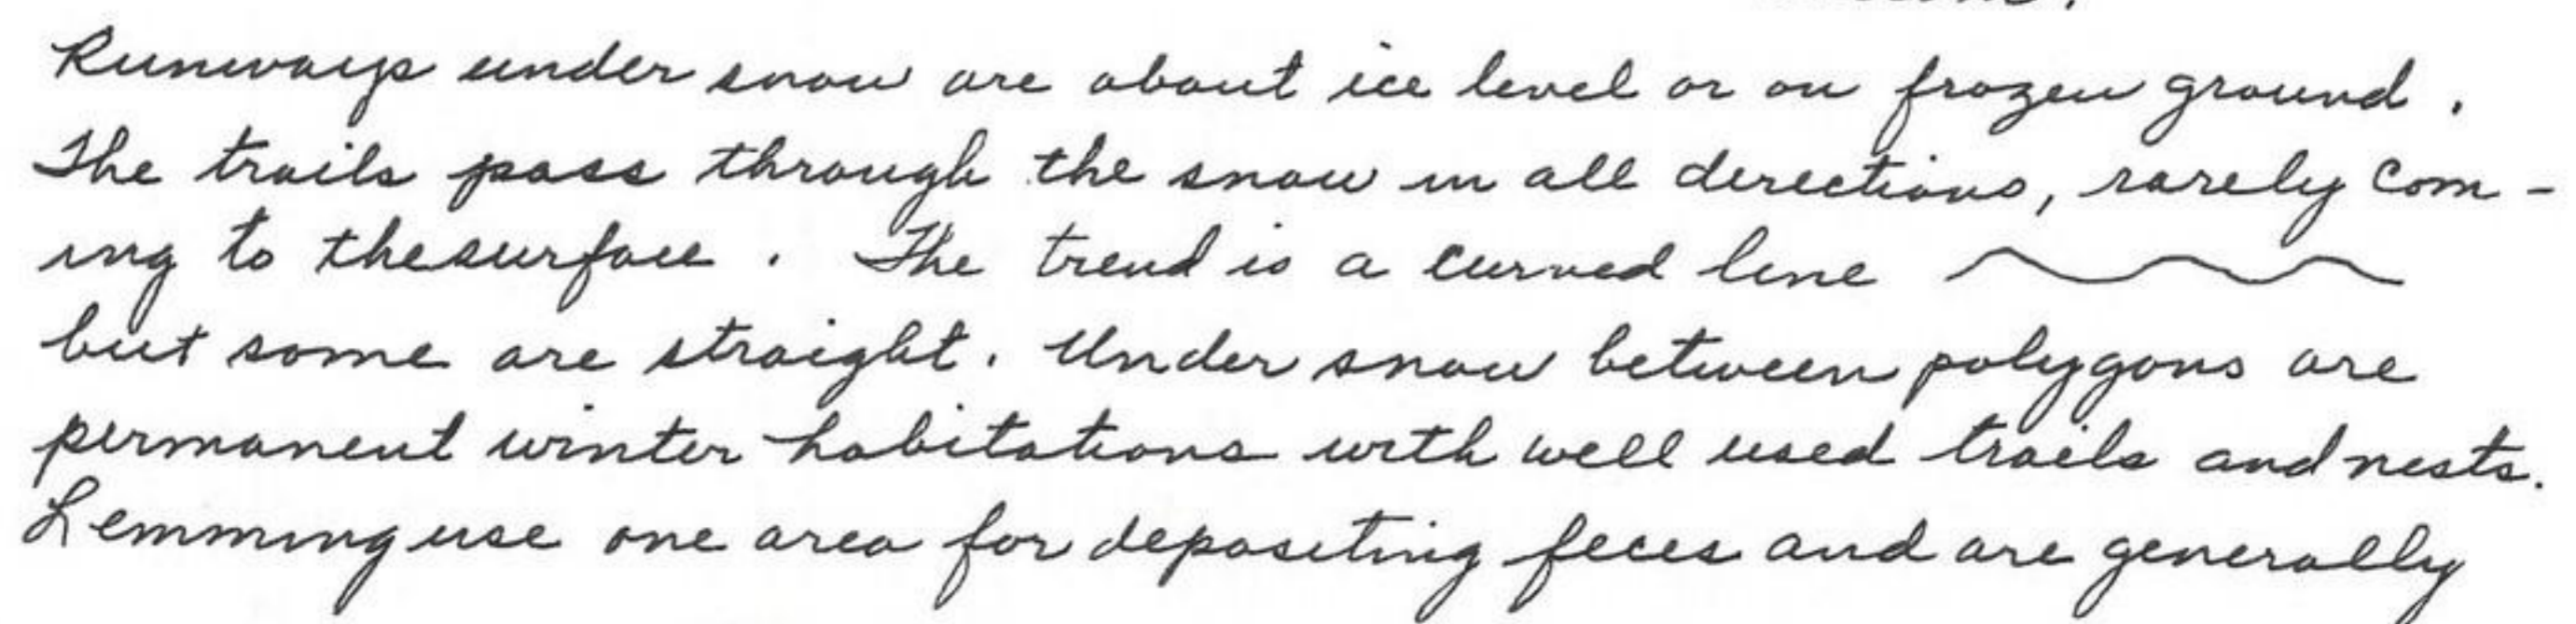 Runways under snow are about ice level or on frozen ground.
The trails pass through the snow in all directions, rarely com-
ing to the surface. The trend is a curved line
but some are straight. Under snow between polygons are
permanent winter habitations with well used trails and nests.
Lemming use one area for depositing feces and are generally